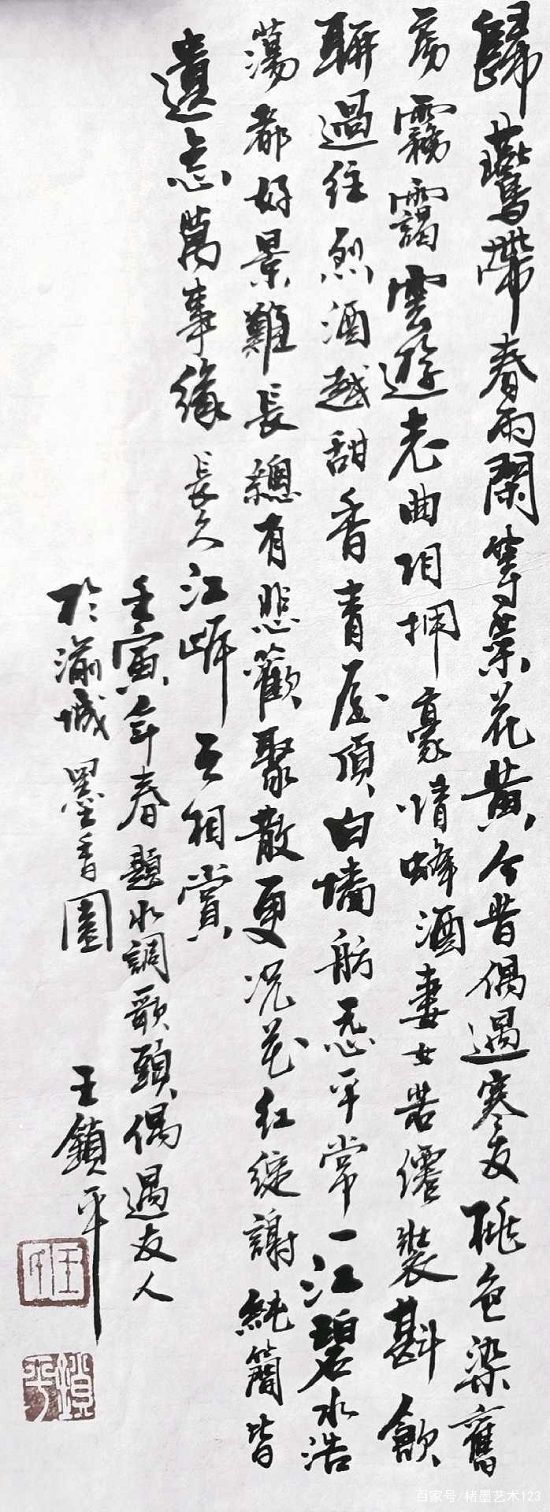 歸鷰帶春雨闌等菜花黃今昔偶遇寒友桃色染舊
房霧靄雲遊老曲相拥豪情蜂酒妻女若儒裝斟飲
聊過往烈酒越甜香青屋頂白墻舫恐平常一江碧水浩
蕩都好景難長總有悲歡聚散更況花红綻謝純簡皆
遺忘萬事緣長久江畔互相賞
壬寅年春題水調歌頭偶遇友人
於渝城墨香園 王鎖平
百家号/楮墨艺术123